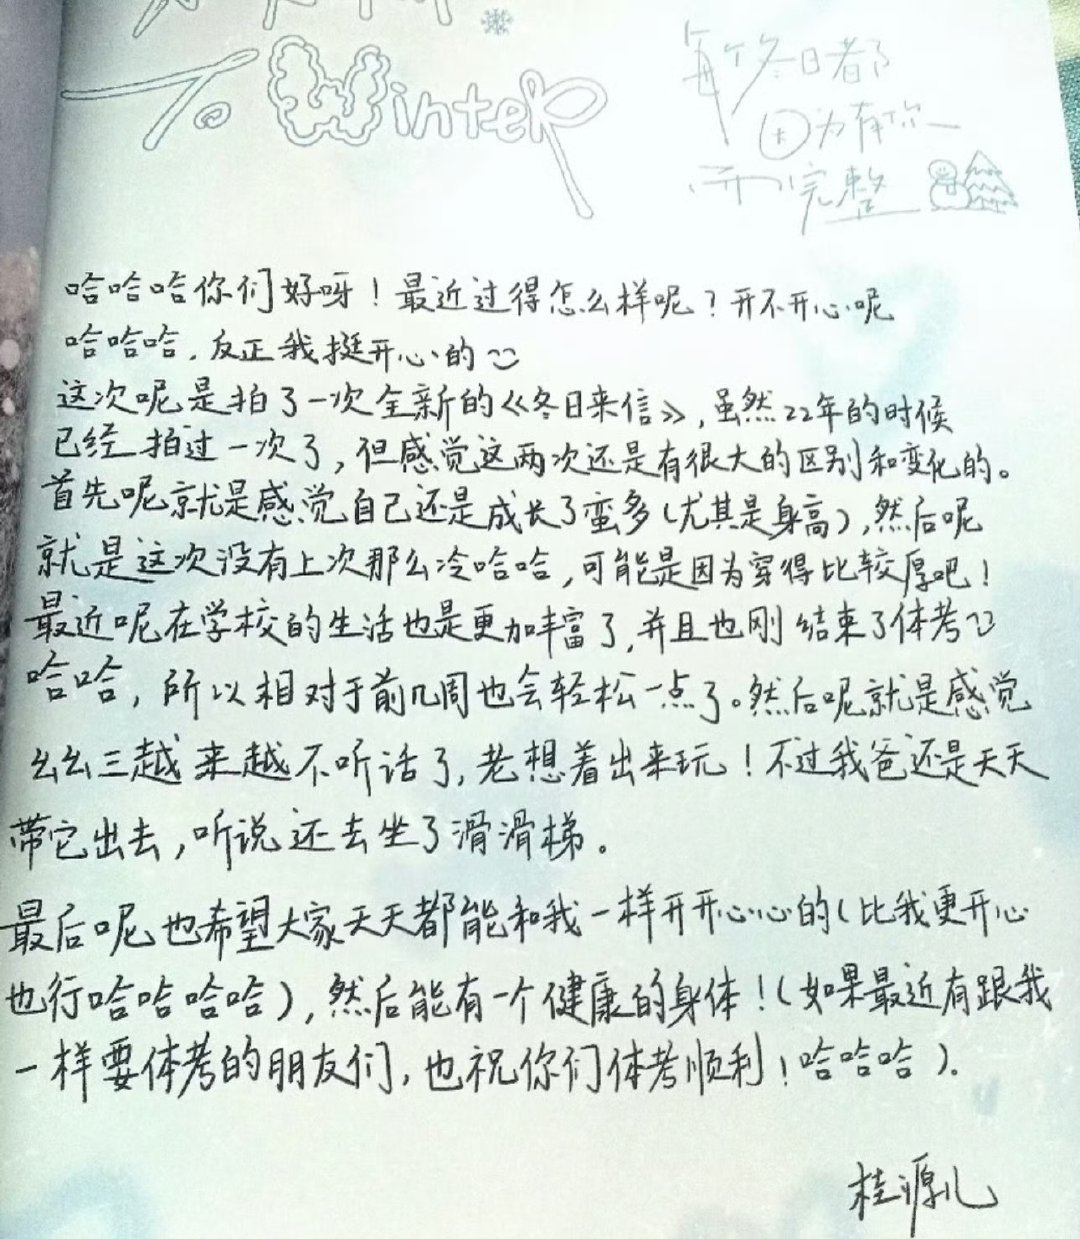 To Winter
每个冬日都
因为有你
而完整
哈哈哈你们好呀！最近过得怎么样呢？开不开心呢
哈哈哈，反正我挺开心的
这次呢是拍了一次全新的《冬日来信》，虽然22年的时候
已经拍过一次了，但感觉这两次还是有很大的区别和变化的。
首先呢就是感觉自己还是成长了蛮多（尤其是身高），然后呢
就是这次没有上次那么冷哈哈，可能是因为穿得比较厚吧！
最近呢在学校的生活也是更加丰富了，并且也刚结束了体考
哈哈，所以相对于前几周也会轻松一点了。然后呢就是感觉
幺幺三越来越不听话了，老想着出来玩！不过我爸还是天天
带它出去，听说还去坐了滑滑梯。
最后呢也希望大家天天都能和我一样开开心心的（比我更开心
也行哈哈哈哈），然后能有一个健康的身体！（如果最近有跟我
一样要体考的朋友们，也祝你们体考顺利！哈哈哈）.
桂源儿